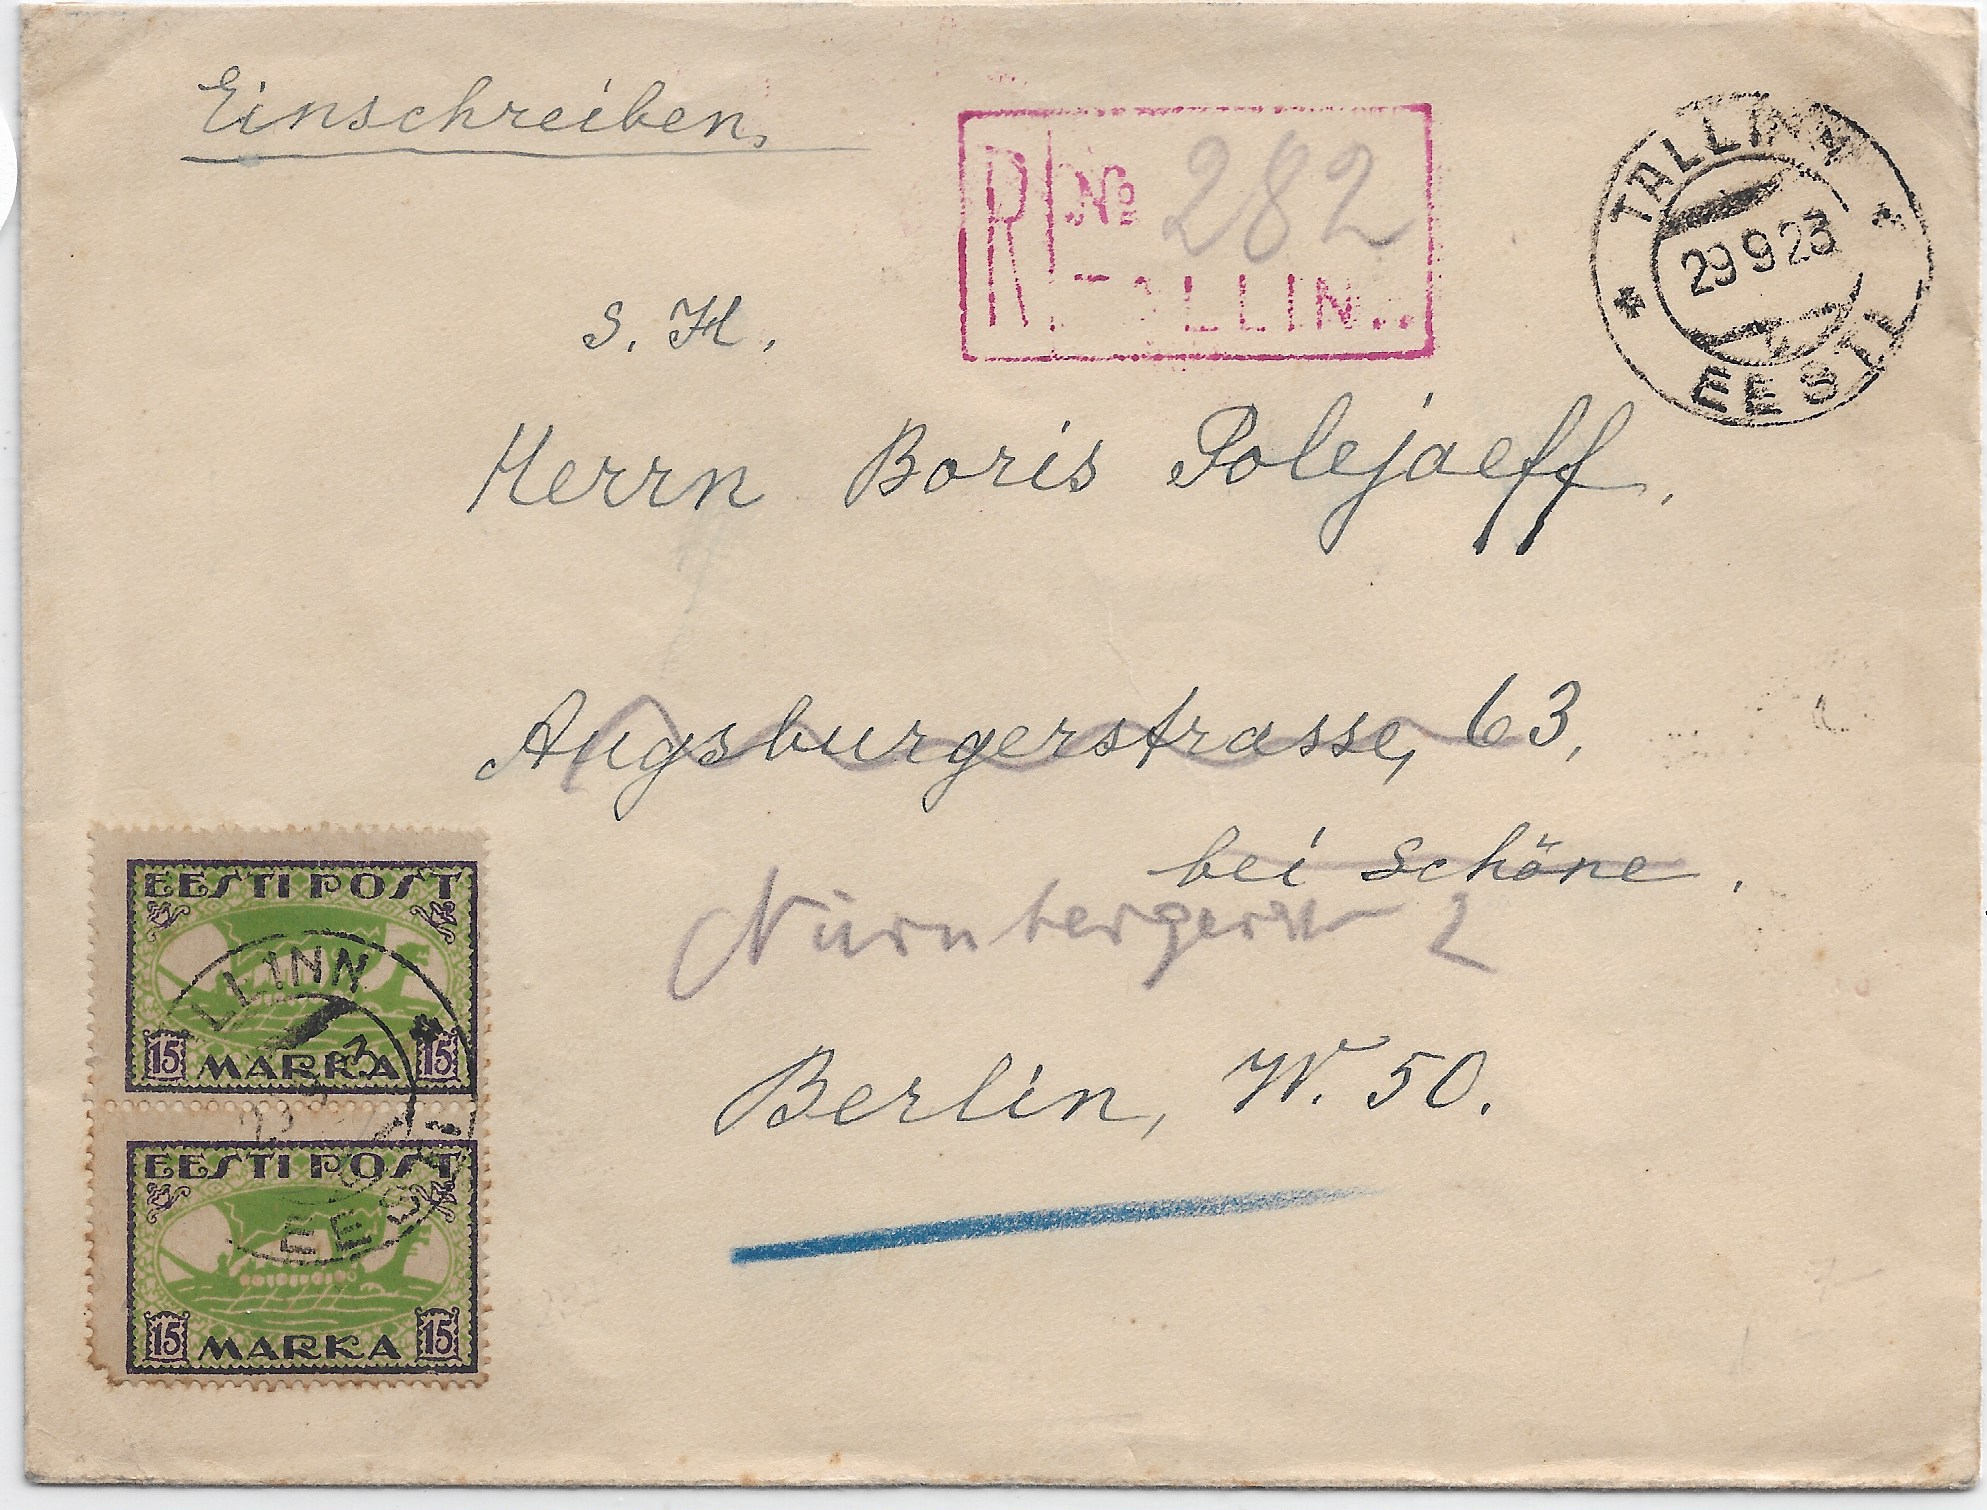 Einschreiben,
R № 282
TALLINN
TALLINN
29 9 23
EESTI
S. H.
Herrn Boris Polejaeff,
Augsburgerstrasse, 63,
bei Schöne.
Nürnbergerstr 2
Berlin, W. 50.
EESTI POST
15 MARKA 15
LLINN
EESTI
EESTI POST
15 MARKA 15